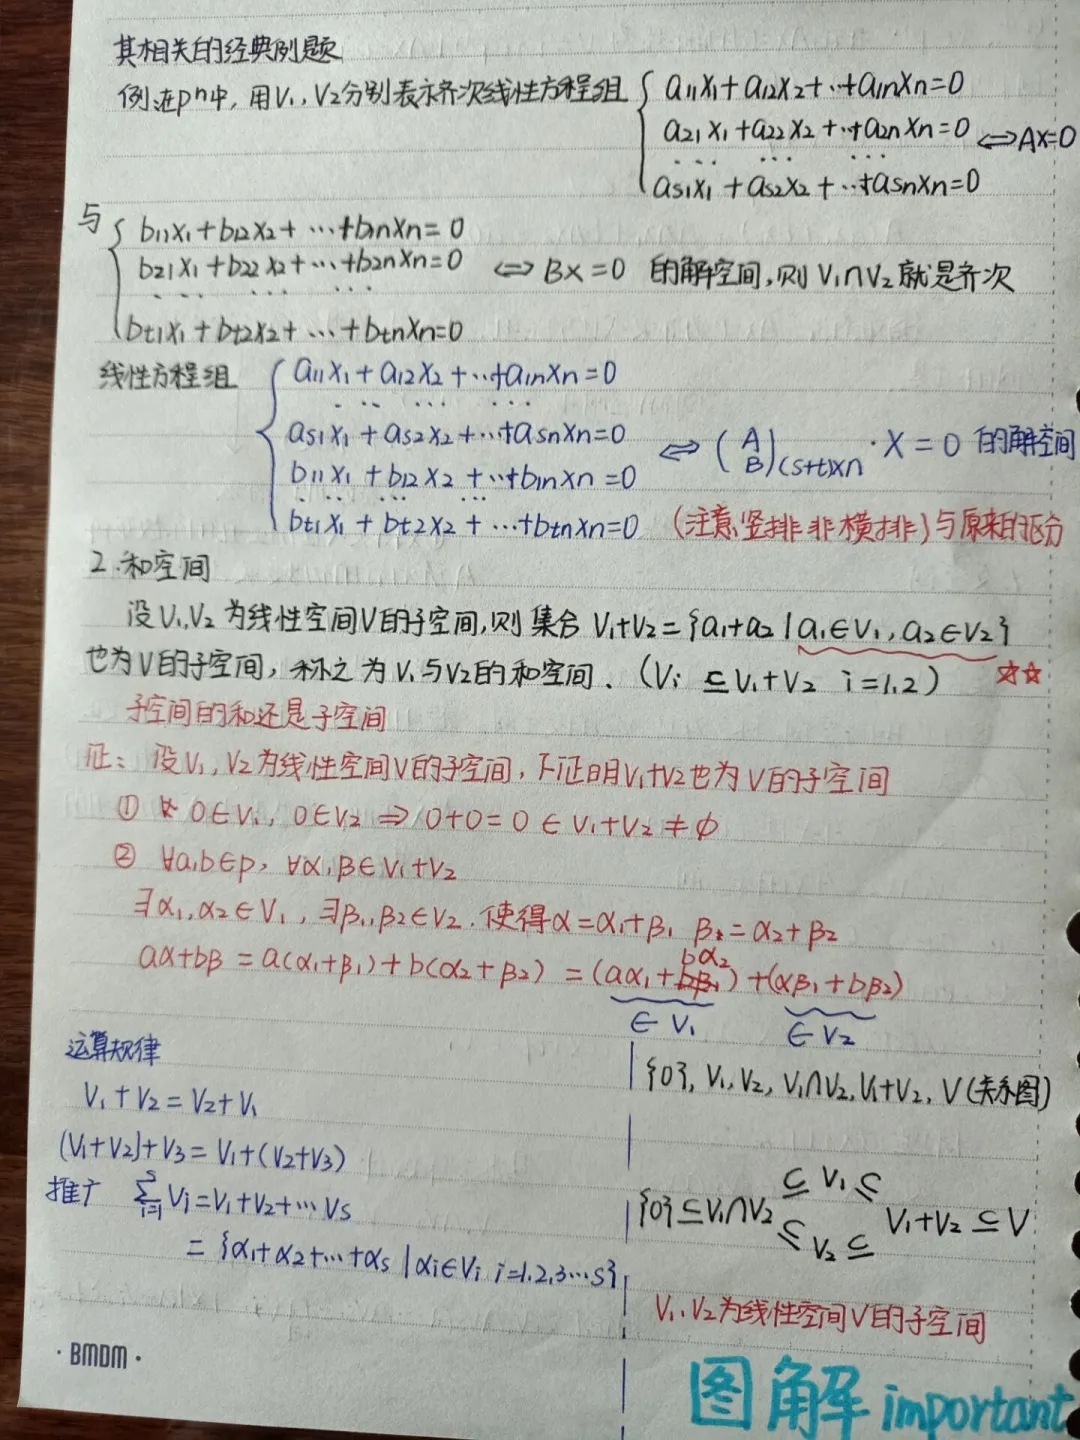 其相关的经典例题
例:在pⁿ中,用V₁,V₂分别表示齐次线性方程组 { a₁₁x₁+a₁₂x₂+…+a₁ₙxₙ=0
a₂₁x₁+a₂₂x₂+…+a₂ₙxₙ=0 ⇔AX=0
… … …
aₛ₁x₁+aₛ₂x₂+…+aₛₙxₙ=0
与 { b₁₁x₁+b₁₂x₂+…+b₁ₙxₙ=0
b₂₁x₁+b₂₂x₂+…+b₂ₙxₙ=0 ⇔ BX=0 的解空间,则V₁∩V₂就是齐次
… … …
bₜ₁x₁+bₜ₂x₂+…+bₜₙxₙ=0
线性方程组 { a₁₁x₁+a₁₂x₂+…+a₁ₙxₙ=0
… … …
aₛ₁x₁+aₛ₂x₂+…+aₛₙxₙ=0 ⇔ (A B)(s+t)×n·X=0 的解空间
b₁₁x₁+b₁₂x₂+…+b₁ₙxₙ=0
… … …
bₜ₁x₁+bₜ₂x₂+…+bₜₙxₙ=0 (注意竖排非横排)与原来的区分
2.和空间
设V₁,V₂为线性空间V的子空间,则集合 V₁+V₂={a₁+a₂|a₁∈V₁,a₂∈V₂}
也为V的子空间,称之为V₁与V₂的和空间.(Vᵢ⊆V₁+V₂ i=1.2) ☆☆
子空间的和还是子空间
证:设V₁,V₂为线性空间V的子空间,下证明V₁+V₂也为V的子空间
① 0∈V₁,0∈V₂⇒0+0=0∈V₁+V₂≠φ
② ∀a,b∈p,∀α,β∈V₁+V₂
∃α₁,α₂∈V₁,∃β₁,β₂∈V₂.使得α=α₁+β₁ β=α₂+β₂
aα+bβ=a(α₁+β₁)+b(α₂+β₂)=(aα₁+bα₂)+(αβ₁+bβ₂)
∈V₁ ∈V₂
运算规律
V₁+V₂=V₂+V₁
(V₁+V₂)+V₃=V₁+(V₂+V₃)
推广 ∑ˢᵢ₌₁Vᵢ=V₁+V₂+…Vₛ
={α₁+α₂+…+αₛ|αᵢ∈Vᵢ i=1.2,3…s}
{0},V₁,V₂,V₁∩V₂,V₁+V₂,V(关系图)
⊆ V₁ ⊆
{0}⊆V₁∩V₂ V₁+V₂⊆V
⊆ V₂ ⊆
V₁.V₂为线性空间V的子空间
·BMDM·
图解important